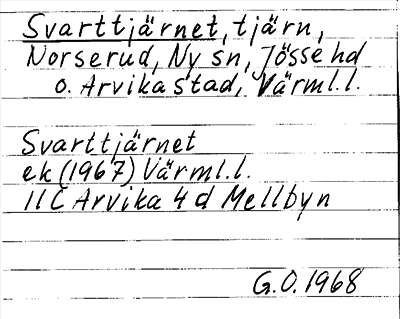 Svarttjärnet, tjärn,
Norserud, Ny sn, Jösse hd
o. Arvika stad, Värml.l.
Svarttjärnet
ek (1967) Värml.l.
11C Arvika 4d Mellbyn
G.O. 1968